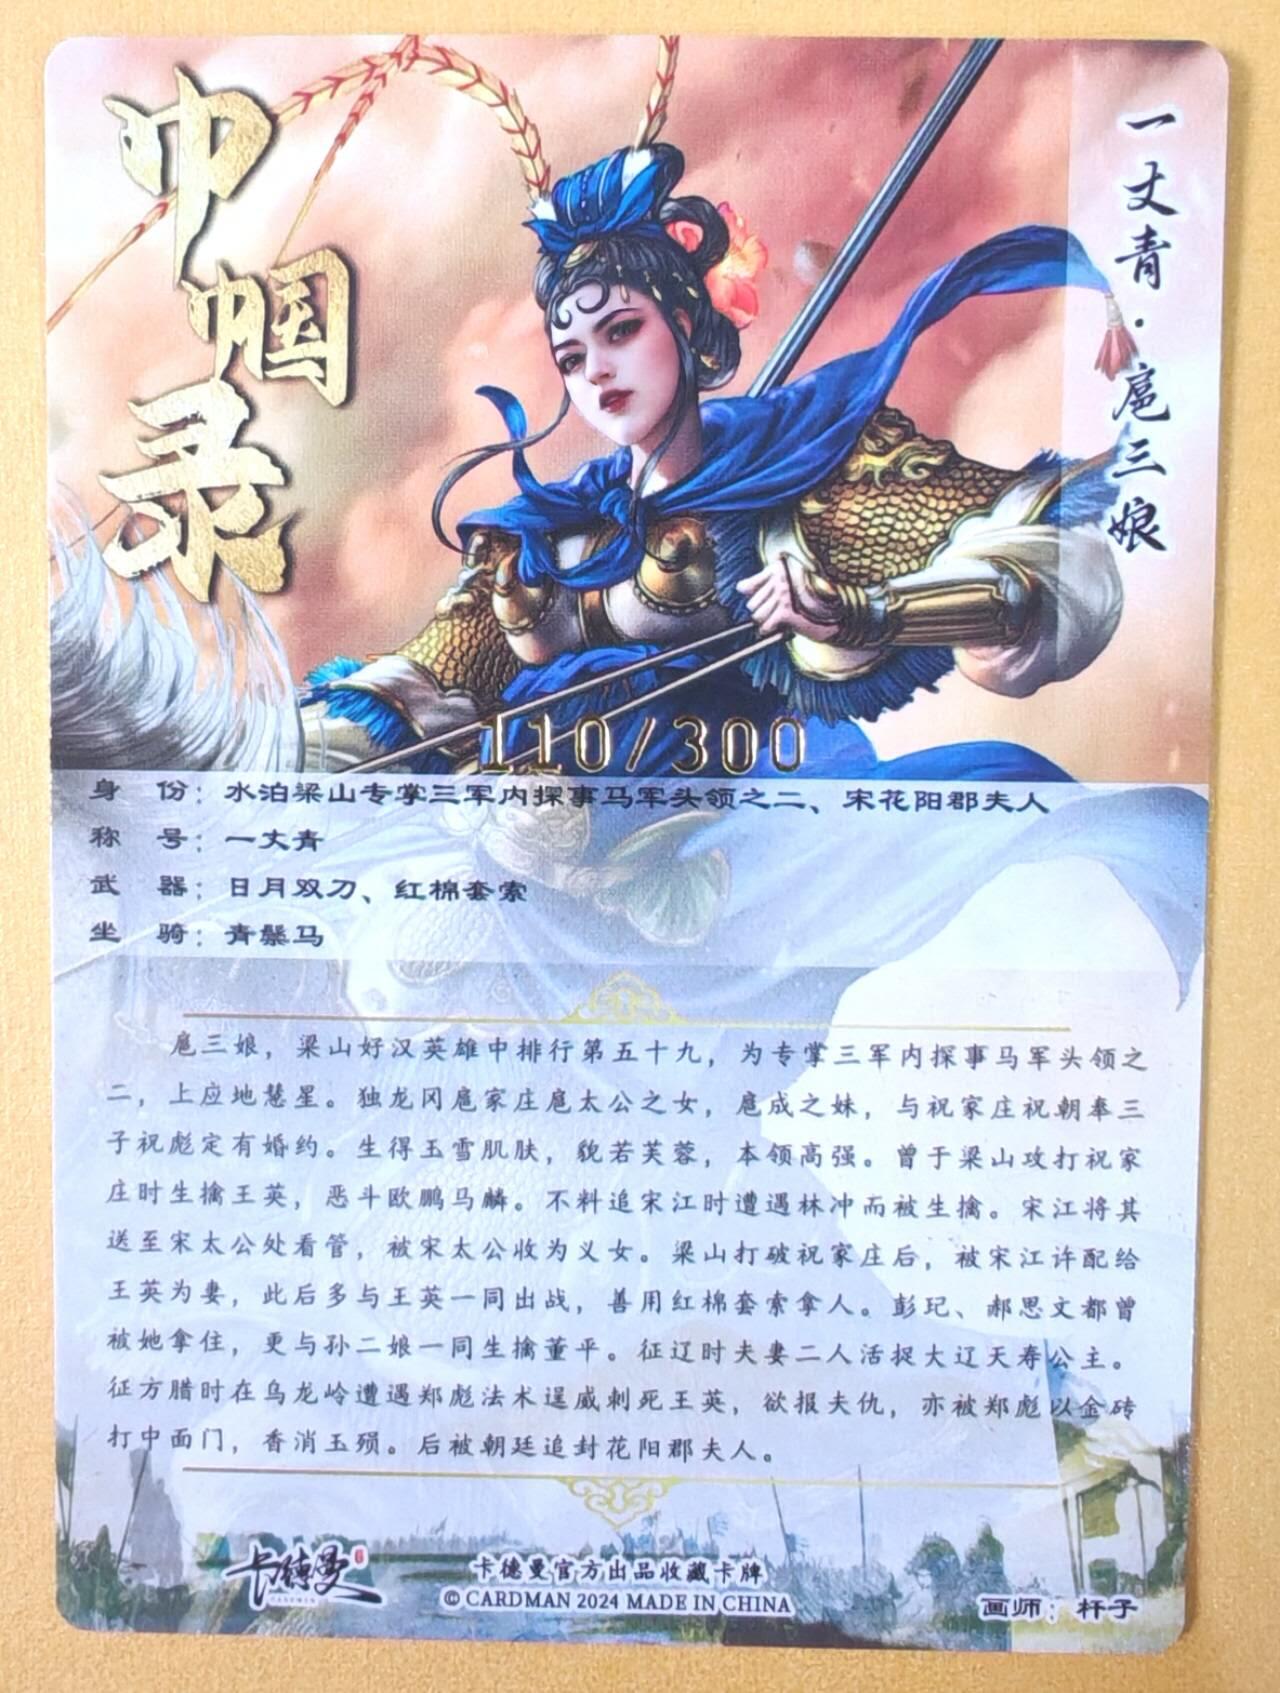 巾帼录
一丈青·扈三娘
110/300
身　份：水泊梁山专掌三军内探事马军头领之二、宋花阳郡夫人
称　号：一丈青
武　器：日月双刀、红棉套索
坐　骑：青鬃马
扈三娘，梁山好汉英雄中排行第五十九，为专掌三军内探事马军头领之
二，上应地慧星。独龙冈扈家庄扈太公之女，扈成之妹，与祝家庄祝朝奉三
子祝彪定有婚约。生得玉雪肌肤，貌若芙蓉，本领高强。曾于梁山攻打祝家
庄时生擒王英，恶斗欧鹏马麟。不料追宋江时遭遇林冲而被生擒。宋江将其
送至宋太公处看管，被宋太公收为义女。梁山打破祝家庄后，被宋江许配给
王英为妻，此后多与王英一同出战，善用红棉套索拿人。彭玘、郝思文都曾
被她拿住，更与孙二娘一同生擒董平。征辽时夫妻二人活捉大辽天寿公主。
征方腊时在乌龙岭遭遇郑彪法术逞威刺死王英，欲报夫仇，亦被郑彪以金砖
打中面门，香消玉殒。后被朝廷追封花阳郡夫人。
卡德曼
CARDMAN
卡德曼官方出品收藏卡牌
© CARDMAN 2024 MADE IN CHINA
画师：杆子